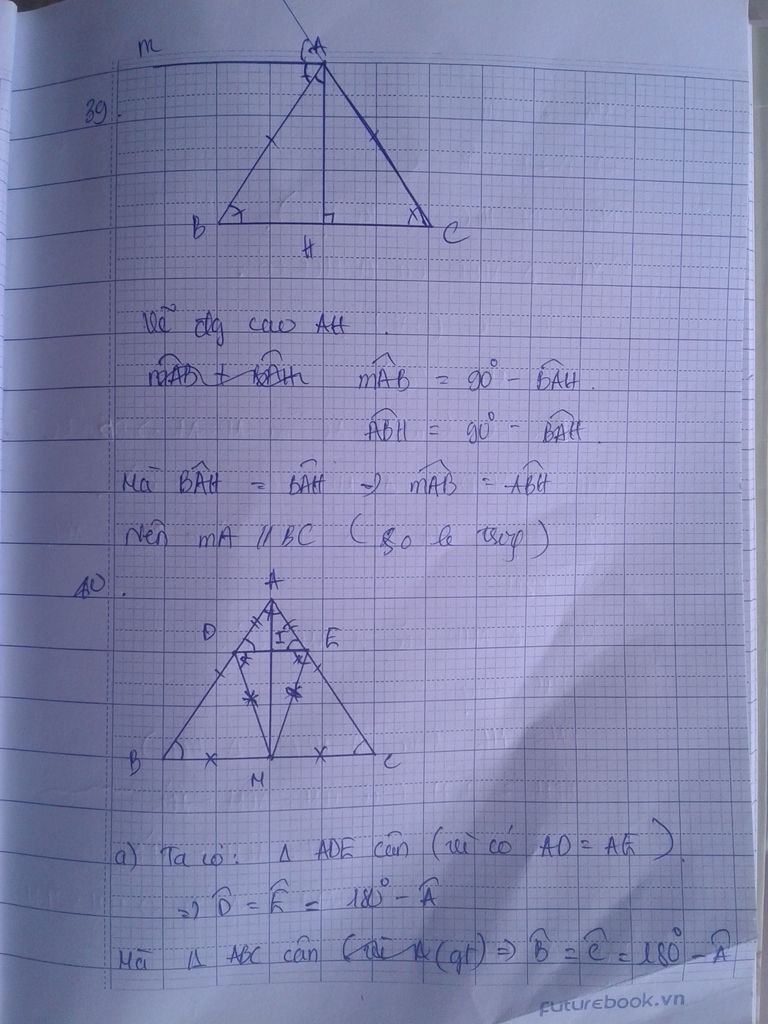 m A
39.
B H C
Vẽ đg cao AH.
mAB̂ = 90° - BÂH.
ABĤ = 90° - BÂH.
Mà BÂH = BÂH => mÂB = ABĤ
Nên mA // BC (so le trog)
40.
A
D I E
B M C
a) Ta có: Δ ADE cân (vì có AD = AE)
=> D̂ = Ê = 180° - Â
Mà Δ ABC cân A (gt) => B̂ = Ĉ = 180° - Â
futurebook.vn